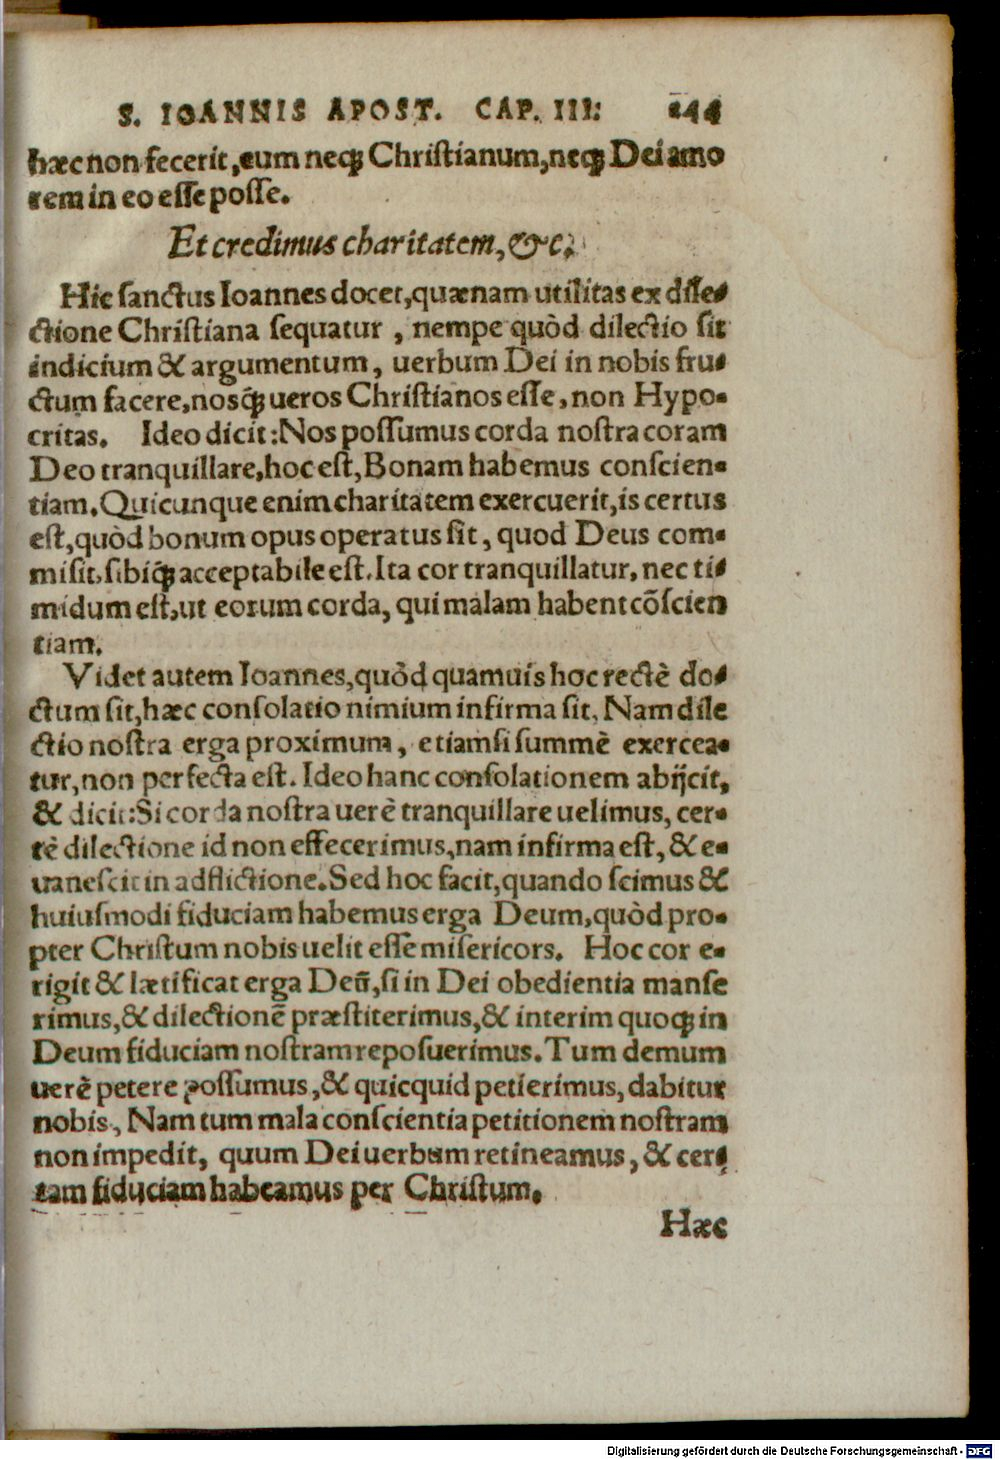 S. IOANNIS APOST. CAP. III: 244
hæc non fecerit, eum neqꝫ Christianum, neqꝫ Dei amo
rem in eo esse posse.
Et credimus charitatem, &c.
Hic sanctus Ioannes docet, quænam utilitas ex dile-
ctione Christiana sequatur, nempe quòd dilectio sit
indicium & argumentum, uerbum Dei in nobis fru-
ctum facere, nosqꝫ ueros Christianos esse, non Hypo-
critas. Ideo dicit: Nos possumus corda nostra coram
Deo tranquillare, hoc est, Bonam habemus conscien-
tiam. Quicunque enim charitatem exercuerit, is certus
est, quòd bonum opus operatus sit, quod Deus com-
misit, sibiqꝫ acceptabile est. Ita cor tranquillatur, nec ti-
midum est, ut eorum corda, qui malam habent cõscien
tiam.
Videt autem Ioannes, quòd quamuis hoc rectè do-
ctum sit, hæc consolatio nimium infirma sit. Nam dile
ctio nostra erga proximum, etiamsi summè exercea-
tur, non perfecta est. Ideo hanc consolationem abijcit,
& dicit: Si corda nostra uerè tranquillare uelimus, cer-
tè dilectione id non effecerimus, nam infirma est, & e-
uanescit in adflictione. Sed hoc facit, quando scimus &
huiusmodi fiduciam habemus erga Deum, quòd pro-
pter Christum nobis uelit esse misericors. Hoc cor e-
rigit & lætificat erga Deũ, si in Dei obedientia manse
rimus, & dilectionẽ præstiterimus, & interim quoqꝫ in
Deum fiduciam nostram reposuerimus. Tum demum
uerè petere possumus, & quicquid petierimus, dabitur
nobis, Nam tum mala conscientia petitionem nostram
non impedit, quum Dei uerbum retineamus, & cer-
tam fiduciam habeamus per Christum.
Hæc
Digitalisierung gefördert durch die Deutsche Forschungsgemeinschaft - DFG